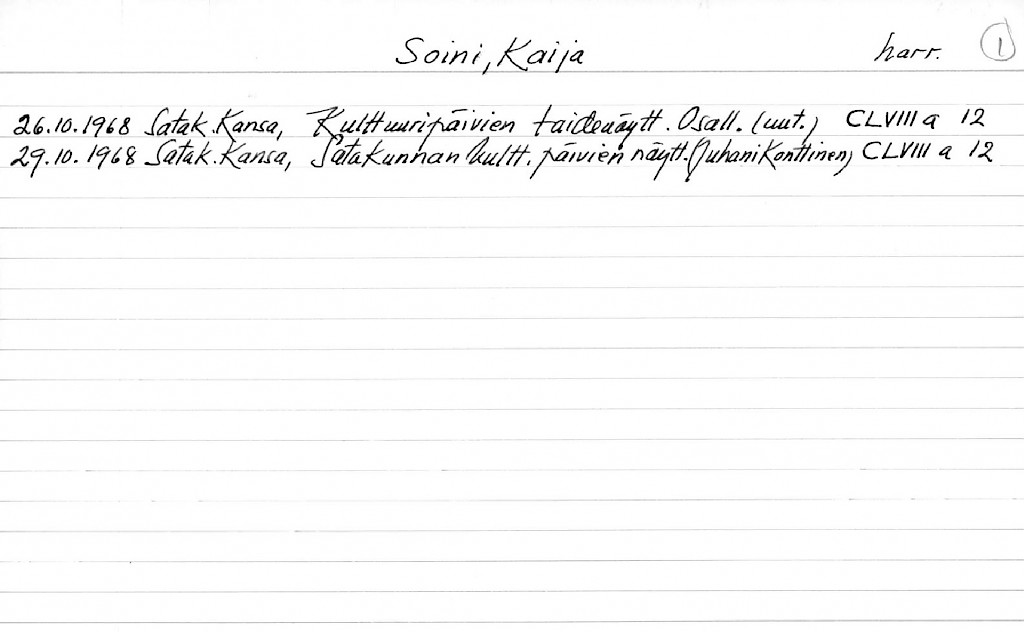 Soini, Kaija harr. 1
26.10.1968 Satak. Kansa, Kulttuuripäivien taidenäytt. Osall. (uut.) CLVIII a 12
29.10.1968 Satak. Kansa, Satakunnan kultt. päivien näytt. (Juhani Konttinen) CLVIII a 12